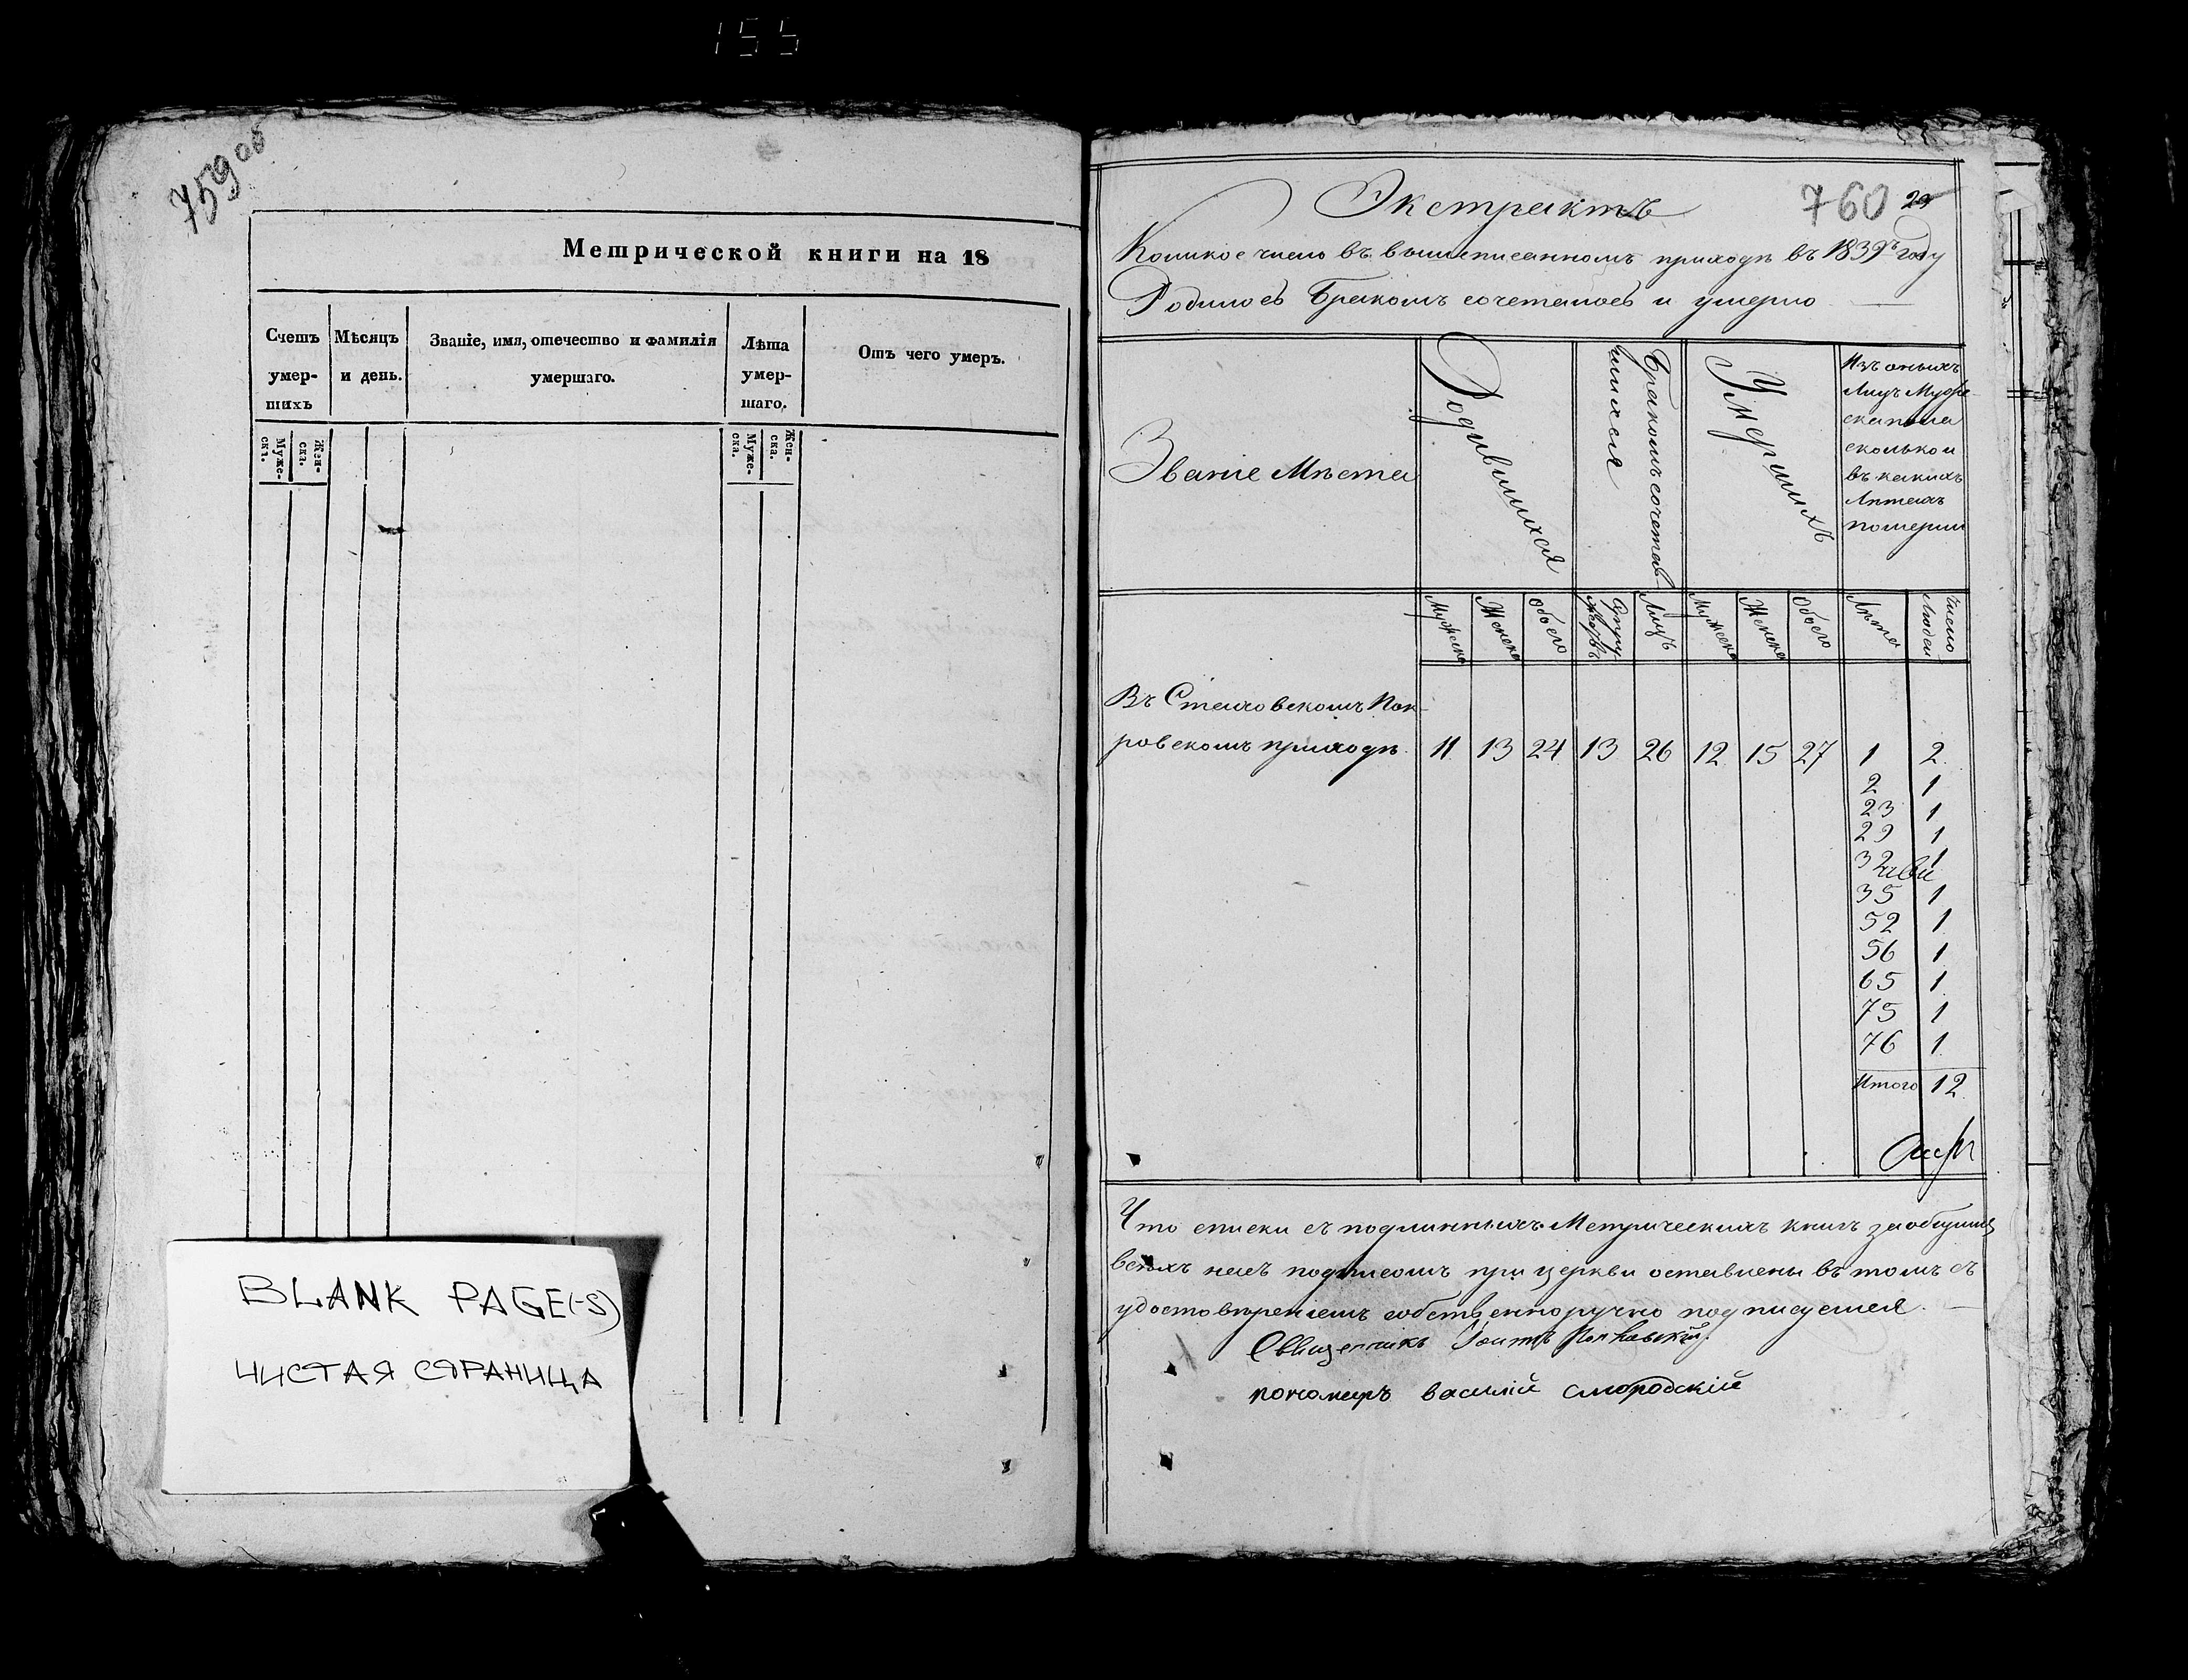 155
759 об
Метрической книги на 18
Счетъ умер- шихъ
Мѣсяцъ и день.
Званіе, имя, отечество и фамилія умершаго.
Лѣта умер- шаго.
Отъ чего умеръ.
Муже- ска.
Жен- ска.
Муже- ска.
Жен- ска.
BLANK PAGE(-S)
ЧИСТАЯ СТРАНИЦА
Экстрактъ
760 29
Коликое число въ вышеписанномъ приходѣ въ 1839 году
Родилось Бракомъ сочеталось и умерло
Званіе Мѣста
Родившихся
Бракомъ сочетав-
шихся
Умершихъ
Изъ оныхъ
Лицъ Муже-
ска пола
сколько и
въ какихъ
Лѣтахъ
померли
Мужеска
Женска
Обоего
Супру-
жествъ
Лицъ
Мужеска
Женска
Обоего
Лѣта
Число
Людей
Въ Стаховскомъ Пок-
ровскомъ приходѣ. 11 13 24 13 26 12 15 27 1 2
2 1
23 1
29 1
32 1
35 1
52 1
56 1
65 1
75 1
76 1
Итого 12
Что списки съ подлинныхъ Метрическихъ книгъ за общимъ
всѣхъ насъ подписомъ при церкви оставлены въ томъ съ
удостовѣреніемъ собственноручно подписуемся.
Священникъ
пономарь василій смородскій